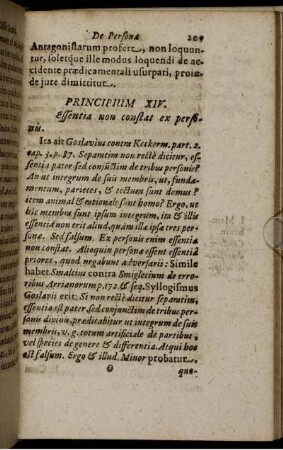 De Personæ 209
Antagonistarum profert, non loquun-
tur, soletque ille modus loquendi de ac-
cidente prædicamentali usurpari, proin-
de jure dimittitur.
PRINCIPIUM XIV.
Essentia non constat ex perso-
nis.
Ita ait Goslavius contra Keckerm. part. 2.
cap. 3. p. 87. Separatim non rectè dicitur, es-
sentia pater sed conjūctim de tribus personis?
An ut integrum de suis membris, ut, funda-
mentum, parietes, & tectum sunt domus?
item animal & rationale sunt homo? Ergo. ut
hic membra sunt ipsum integrum, ita & illic
essentia non erit aliud, quàm illa ipsa tres per-
sonæ. Sed falsum. Ex personis enim essentia
non constat. Alioquin personæ essent essentiâ
priores, quod negabunt Adversarii: Simile
habet Smalcius contra Smiglecium de erro-
ribus Arrianorum p. 172. & seq. Syllogismus
Goslavii erit: Si non rectè dicitur separatim,
essentia est pater sed conjunctim de tribus per-
sonis divinis, prædicabitur ut integrum de suis
membris, v. g. totum artificiale de partibus,
vel species de genere & differentia. Atqui hoc
est falsum. Ergo & illud. Minor probatur,
O que-